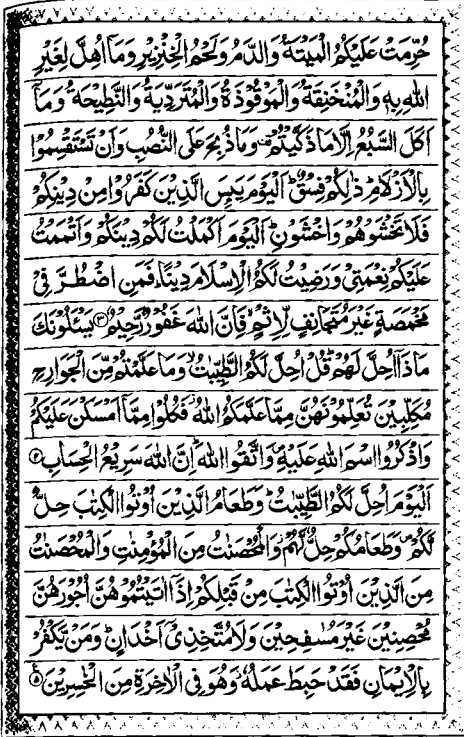 حُرِّمَتْ عَلَيْكُمُ الْمَيْتَةُ وَالدَّمُ وَلَحْمُ الْخِنْزِيْرِ وَمَاۤ اُهِلَّ لِغَيْرِ
اللّٰهِ بِهٖ وَالْمُنْخَنِقَةُ وَالْمَوْقُوْذَةُ وَالْمُتَرَدِّيَةُ وَالنَّطِيْحَةُ وَمَاۤ
اَكَلَ السَّبُعُ اِلَّا مَا ذَكَّيْتُمْ ۫ وَمَا ذُبِحَ عَلَى النُّصُبِ وَاَنْ تَسْتَقْسِمُوْا
بِالْاَزْلَامِ ؕ ذٰلِكُمْ فِسْقٌ ؕ اَلْيَوْمَ يَىِٕسَ الَّذِيْنَ كَفَرُوْا مِنْ دِيْنِكُمْ
فَلَا تَخْشَوْهُمْ وَاخْشَوْنِ ؕ اَلْيَوْمَ اَكْمَلْتُ لَكُمْ دِيْنَكُمْ وَاَتْمَمْتُ
عَلَيْكُمْ نِعْمَتِيْ وَرَضِيْتُ لَكُمُ الْاِسْلَامَ دِيْنًا ؕ فَمَنِ اضْطُرَّ فِيْ
مَخْمَصَةٍ غَيْرَ مُتَجَانِفٍ لِّاِثْمٍ ۙ فَاِنَّ اللّٰهَ غَفُوْرٌ رَّحِيْمٌ ۝۳ يَسْـَٔلُوْنَكَ
مَاذَاۤ اُحِلَّ لَهُمْ ؕ قُلْ اُحِلَّ لَكُمُ الطَّيِّبٰتُ ۙ وَمَا عَلَّمْتُمْ مِّنَ الْجَوَارِحِ
مُكَلِّبِيْنَ تُعَلِّمُوْنَهُنَّ مِمَّا عَلَّمَكُمُ اللّٰهُ ؗ فَكُلُوْا مِمَّاۤ اَمْسَكْنَ عَلَيْكُمْ
وَاذْكُرُوا اسْمَ اللّٰهِ عَلَيْهِ ۪ وَاتَّقُوا اللّٰهَ ؕ اِنَّ اللّٰهَ سَرِيْعُ الْحِسَابِ ۝۴
اَلْيَوْمَ اُحِلَّ لَكُمُ الطَّيِّبٰتُ ؕ وَطَعَامُ الَّذِيْنَ اُوْتُوا الْكِتٰبَ حِلٌّ
لَّكُمْ ۪ وَطَعَامُكُمْ حِلٌّ لَّهُمْ ؗ وَالْمُحْصَنٰتُ مِنَ الْمُؤْمِنٰتِ وَالْمُحْصَنٰتُ
مِنَ الَّذِيْنَ اُوْتُوا الْكِتٰبَ مِنْ قَبْلِكُمْ اِذَاۤ اٰتَيْتُمُوْهُنَّ اُجُوْرَهُنَّ
مُحْصِنِيْنَ غَيْرَ مُسٰفِحِيْنَ وَلَا مُتَّخِذِيْۤ اَخْدَانٍ ؕ وَمَنْ يَّكْفُرْ
بِالْاِيْمَانِ فَقَدْ حَبِطَ عَمَلُهٗ ؗ وَهُوَ فِي الْاٰخِرَةِ مِنَ الْخٰسِرِيْنَ ۝۵